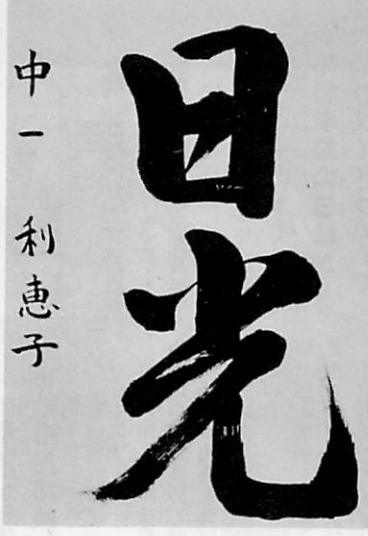 日光
中一 利恵子